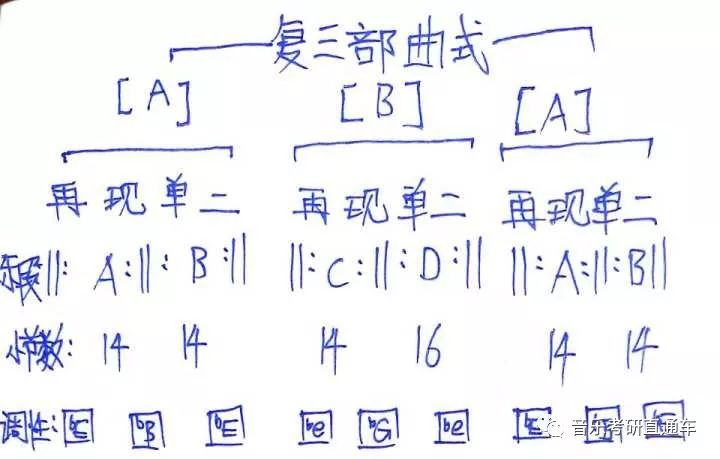 复三部曲式
[A] [B] [A]
再现单二 再现单二 再现单二
乐段 ||: A :||: B :|| ||: C :||: D :|| ||: A :||: B ||
小节数: 14 14 14 16 14 14
调性: bE bB bE be bG be bE bE
音乐考研直通车